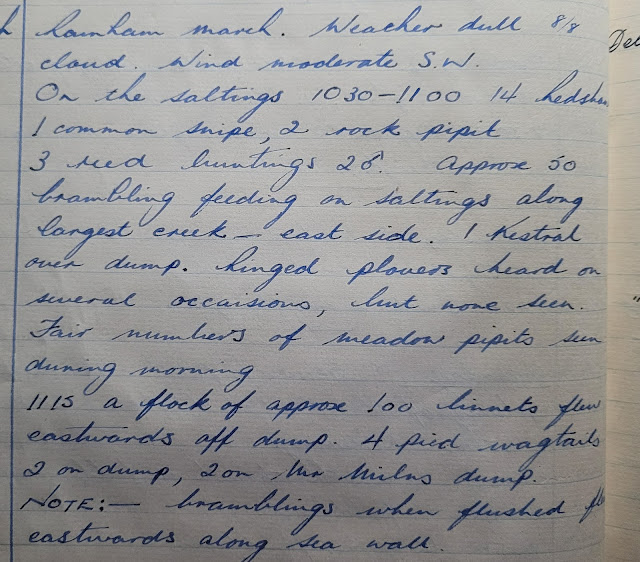 h Rainham marsh. Weather dull 8/8
cloud. Wind moderate S.W.
On the saltings 1030-1100 14 Redshan
1 common snipe, 2 rock pipit
3 reed buntings 2♂. Approx 50
brambling feeding on saltings along
largest creek - east side. 1 Kestral
over dump. Ringed plovers heard on
several occaisions, but none seen.
Fair numbers of meadow pipits seen
during morning
1115 a flock of approx 100 linnets flew
eastwards off dump. 4 pied wagtails
2 on dump, 2 on Mr Milns dump.
NOTE:- bramblings when flushed fle
eastwards along sea wall.
Del
"